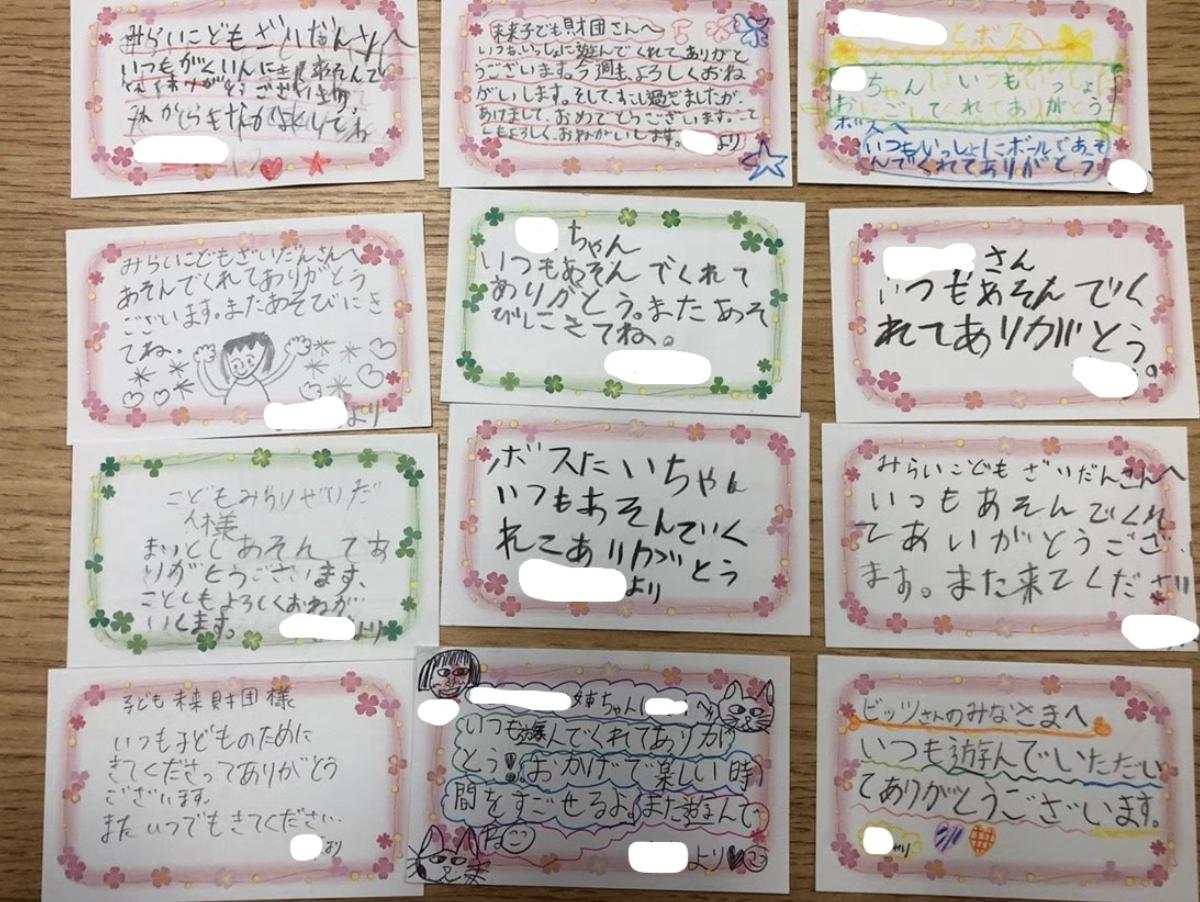 みらいこどもざいだんさんへ
いつもがくいんにき 来 あそんで
ありがとうございます
これからもなかよくしてね
未来子ども財団さんへ
いつもいっしょに遊んでくれてありがと
うございます。今週も、よろしくおね
がいします。そして、すこし過ぎましたが、
あけまして、おめでとうございます。こと
しもよろしく、おねがいします。
より
とボスへ
ちゃんはいつもいっしょに
おにごしてくれてありがとう
ボスへ
いつもいっしょにボールであそ
んでくれてありがとう
みらいこどもざいだんさんへ
あそんでくれてありがとう
ございます。またあそびにき
てね。
より
ちゃん
いつもあそんでくれて
ありがとう。またあそ
びにきてね。
さん
いつもあそんでく
れてありがとう。
こどもみらいざいだ
ん様
まいとしあそんてあ
りがとうございます、
ことしもよろしくおねが
いします。
より
ボスたいちゃん
いつもあそんでいく
れてありがとう
より
みらいこどもざいだんさんへ
いつもあそんでくれ
てあいがとうござい
ます。また来てくださ
子ども未来財団様
いつも子どものために
きてくださってありがとう
ございます。
またいつでもきてください。
より
姉ちゃん
いつも遊んでくれてありが
とう!おかげで楽しい時
間をすごせるよ。また遊んで
ね
より
ビッツさんのみなさまへ
いつも遊んでいただい
てありがとうございます。
より